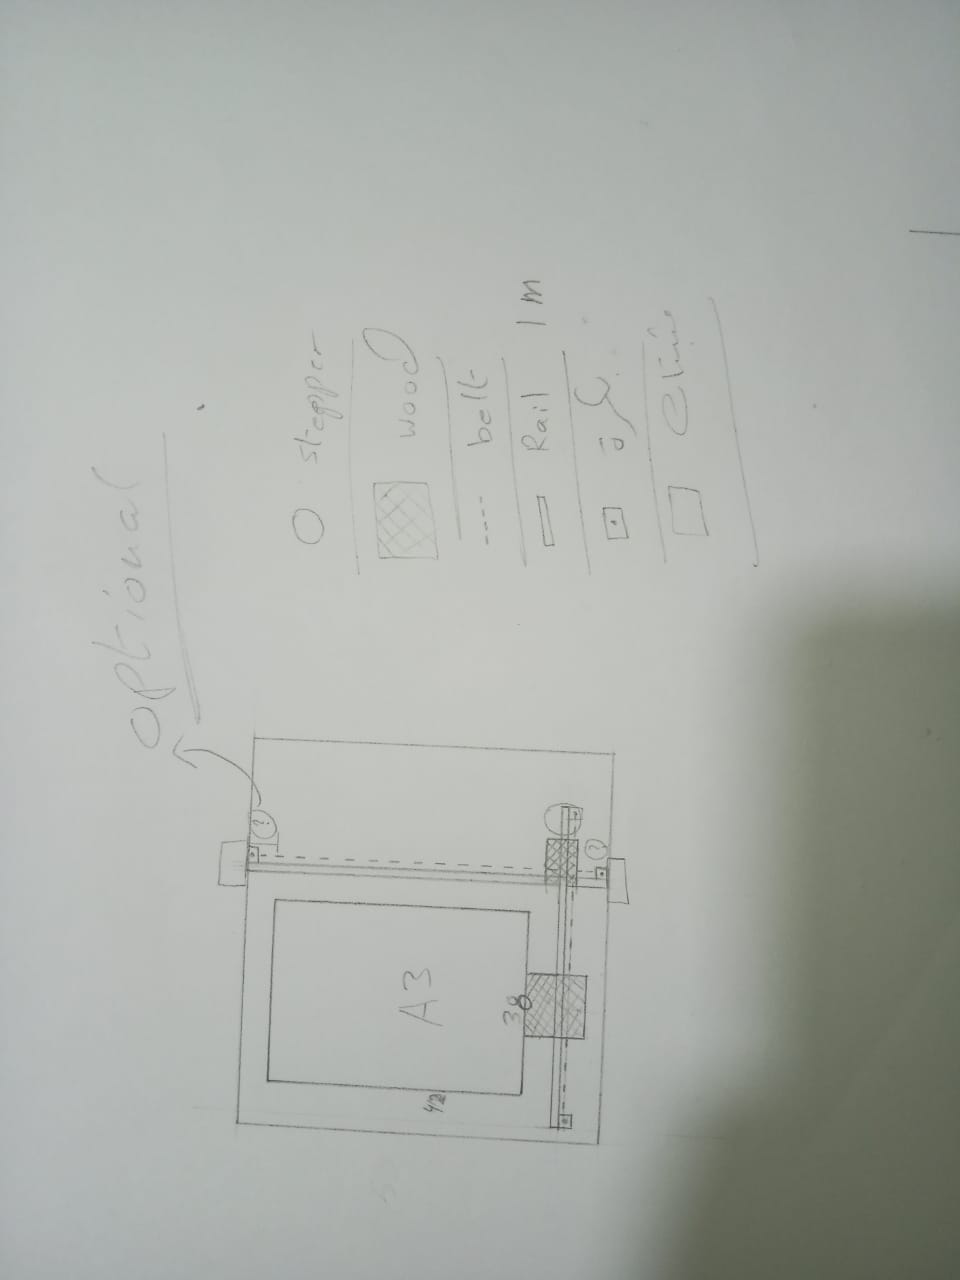 optional
?
A3
42
38
?
stepper
wood
belt
Rail 1 m
بكرة
تثبيت